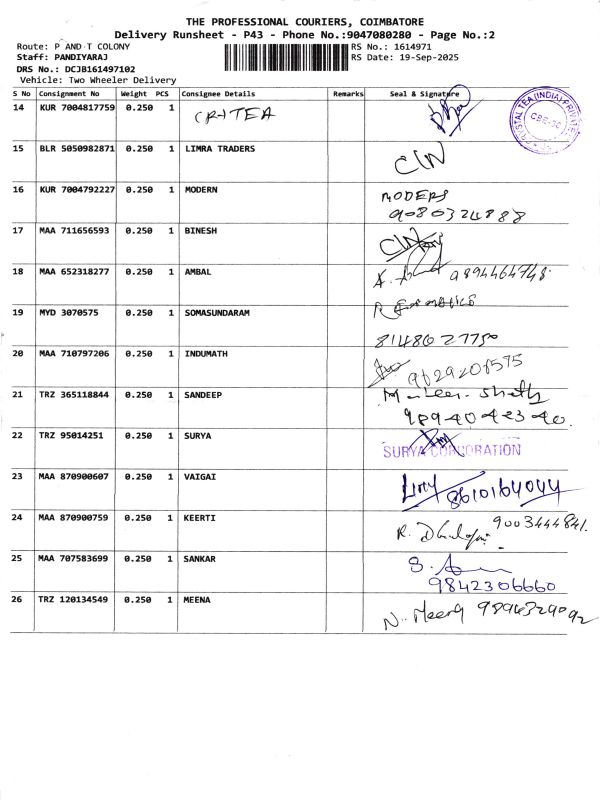 THE PROFESSIONAL COURIERS, COIMBATORE
Delivery Runsheet - P43 - Phone No.:9047080280 - Page No.:2
Route: P AND T COLONY RS No.: 1614971
Staff: PANDIYARAJ RS Date: 19-Sep-2025
DRS No.: DCJB161497102
Vehicle: Two Wheeler Delivery
S No Consignment No Weight PCS Consignee Details Remarks Seal & Signature
14 KUR 7004817759 0.250 1
15 BLR 5050982871 0.250 1 LIMRA TRADERS
16 KUR 7004792227 0.250 1 MODERN
MODERS
9080324888
17 MAA 711656593 0.250 1 BINESH
18 MAA 652318277 0.250 1 AMBAL
9894464748
19 MYD 3070575 0.250 1 SOMASUNDARAM
8148627750
20 MAA 710797206 0.250 1 INDUMATH
9629208575
21 TRZ 365118844 0.250 1 SANDEEP
9894042340
22 TRZ 95014251 0.250 1 SURYA
SURYA CORPORATION
23 MAA 870900607 0.250 1 VAIGAI
8610164044
24 MAA 870900759 0.250 1 KEERTI
9003444841
25 MAA 707583699 0.250 1 SANKAR
9842306660
26 TRZ 120134549 0.250 1 MEENA
N. Meena